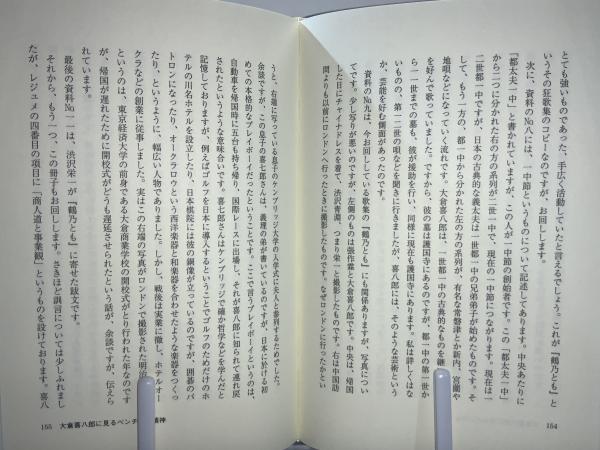 とても強いものであった、手広く活動していたと言えるでしょう。これが『鶴乃とも』と
いうその狂歌集のコピーなのですが、お回しします。
次に、資料のNo.八には、一中節というものについて記述してあります。中央あたりに
「都太夫一中」と書かれていますが、この人が一中節の創始者です。この「都太夫一中」
から二つに分かれた右の方の系列が二世一中で、現在の一中節につながります。現在は一
二世都一中ですが、日本の古典的な義太夫は一世都一中の兄弟弟子が始めたものです。そ
して、もう一方の、都一中から分かれた左の方の系列が、有名な常磐津とか新内、宮薗や
地唄などになっていく流れです。大倉喜八郎は、一世都一中の古典的なものを継
を好んで歌っていました。ですから、彼の墓は護国寺にあるのですが、都一中の第一世か
ら一二世までの墓も、彼が援助を行い、同様に現在も護国寺にあります。私は詳しくはな
いものの、第一二世の唄などを聞きに行きましたが、喜八郎には、そのような芸術という
か、芸能を好む側面があったのです。
資料のNo.九は、今お回ししている歌集の『鶴乃とも』にも関係ありますが、写真につい
てです。少し写りが悪いのですが、左側のものは張作霖と大倉喜八郎です。中央は、帰国
した日にチャイナドレスを着て、渋沢青淵、つまり栄一と撮影したものです。右は中国訪
問よりも以前にロンドンへ行ったときに撮影したものです。なぜロンドンに行ったかとい
154
うと、右端に写っている息子のケンブリッジ大学の入学式に夫人と参列するためでした。
余談ですが、この息子の喜七郎さんは、義理の弟が書いているのですが、日本に於ける初
めての本格的なプレイボーイだったということです。ここで言うプレイボーイというのは、
自動車を帰国時に五台も持ち帰り、国際レースに出場し、それが喜八郎に知られて連れ戻
されたというような意味合いです。喜七郎さんはケンブリッジで確か哲学などを学んだと
記憶しておりますが、例えばゴルフを日本に導入するということでゴルフのためだけのホ
テルの川名ホテルを設立したり、日本棋院には彼の銅像が立っているのですが、囲碁のパ
トロンになったり、オークラロウという西洋楽器と和楽器を合わせたような楽器をつくっ
たり、というように、幅広い人物でありました。しかし、戦後は実業に徹し、ホテルオー
クラなどの創業に従事しました。実はこの右端の写真がロンドンで撮影された明治
というのは、東京経済大学の前身である大倉商業学校の開校式がとり行われた年なのです
が、帰国が遅れたために開校式がどうも遅延させられたという話が、余談ですが、伝えら
れています。
最後の資料No.一一は、渋沢栄一が『鶴乃とも』に寄せた跋文です。
それから、もう一つ、この冊子もお回しします。さきほど訓言については少しふれまし
たが、レジュメの四番目の項目に「商人道と事業観」というものを設けております。喜八
155 大倉喜八郎に見るベンチ 精神